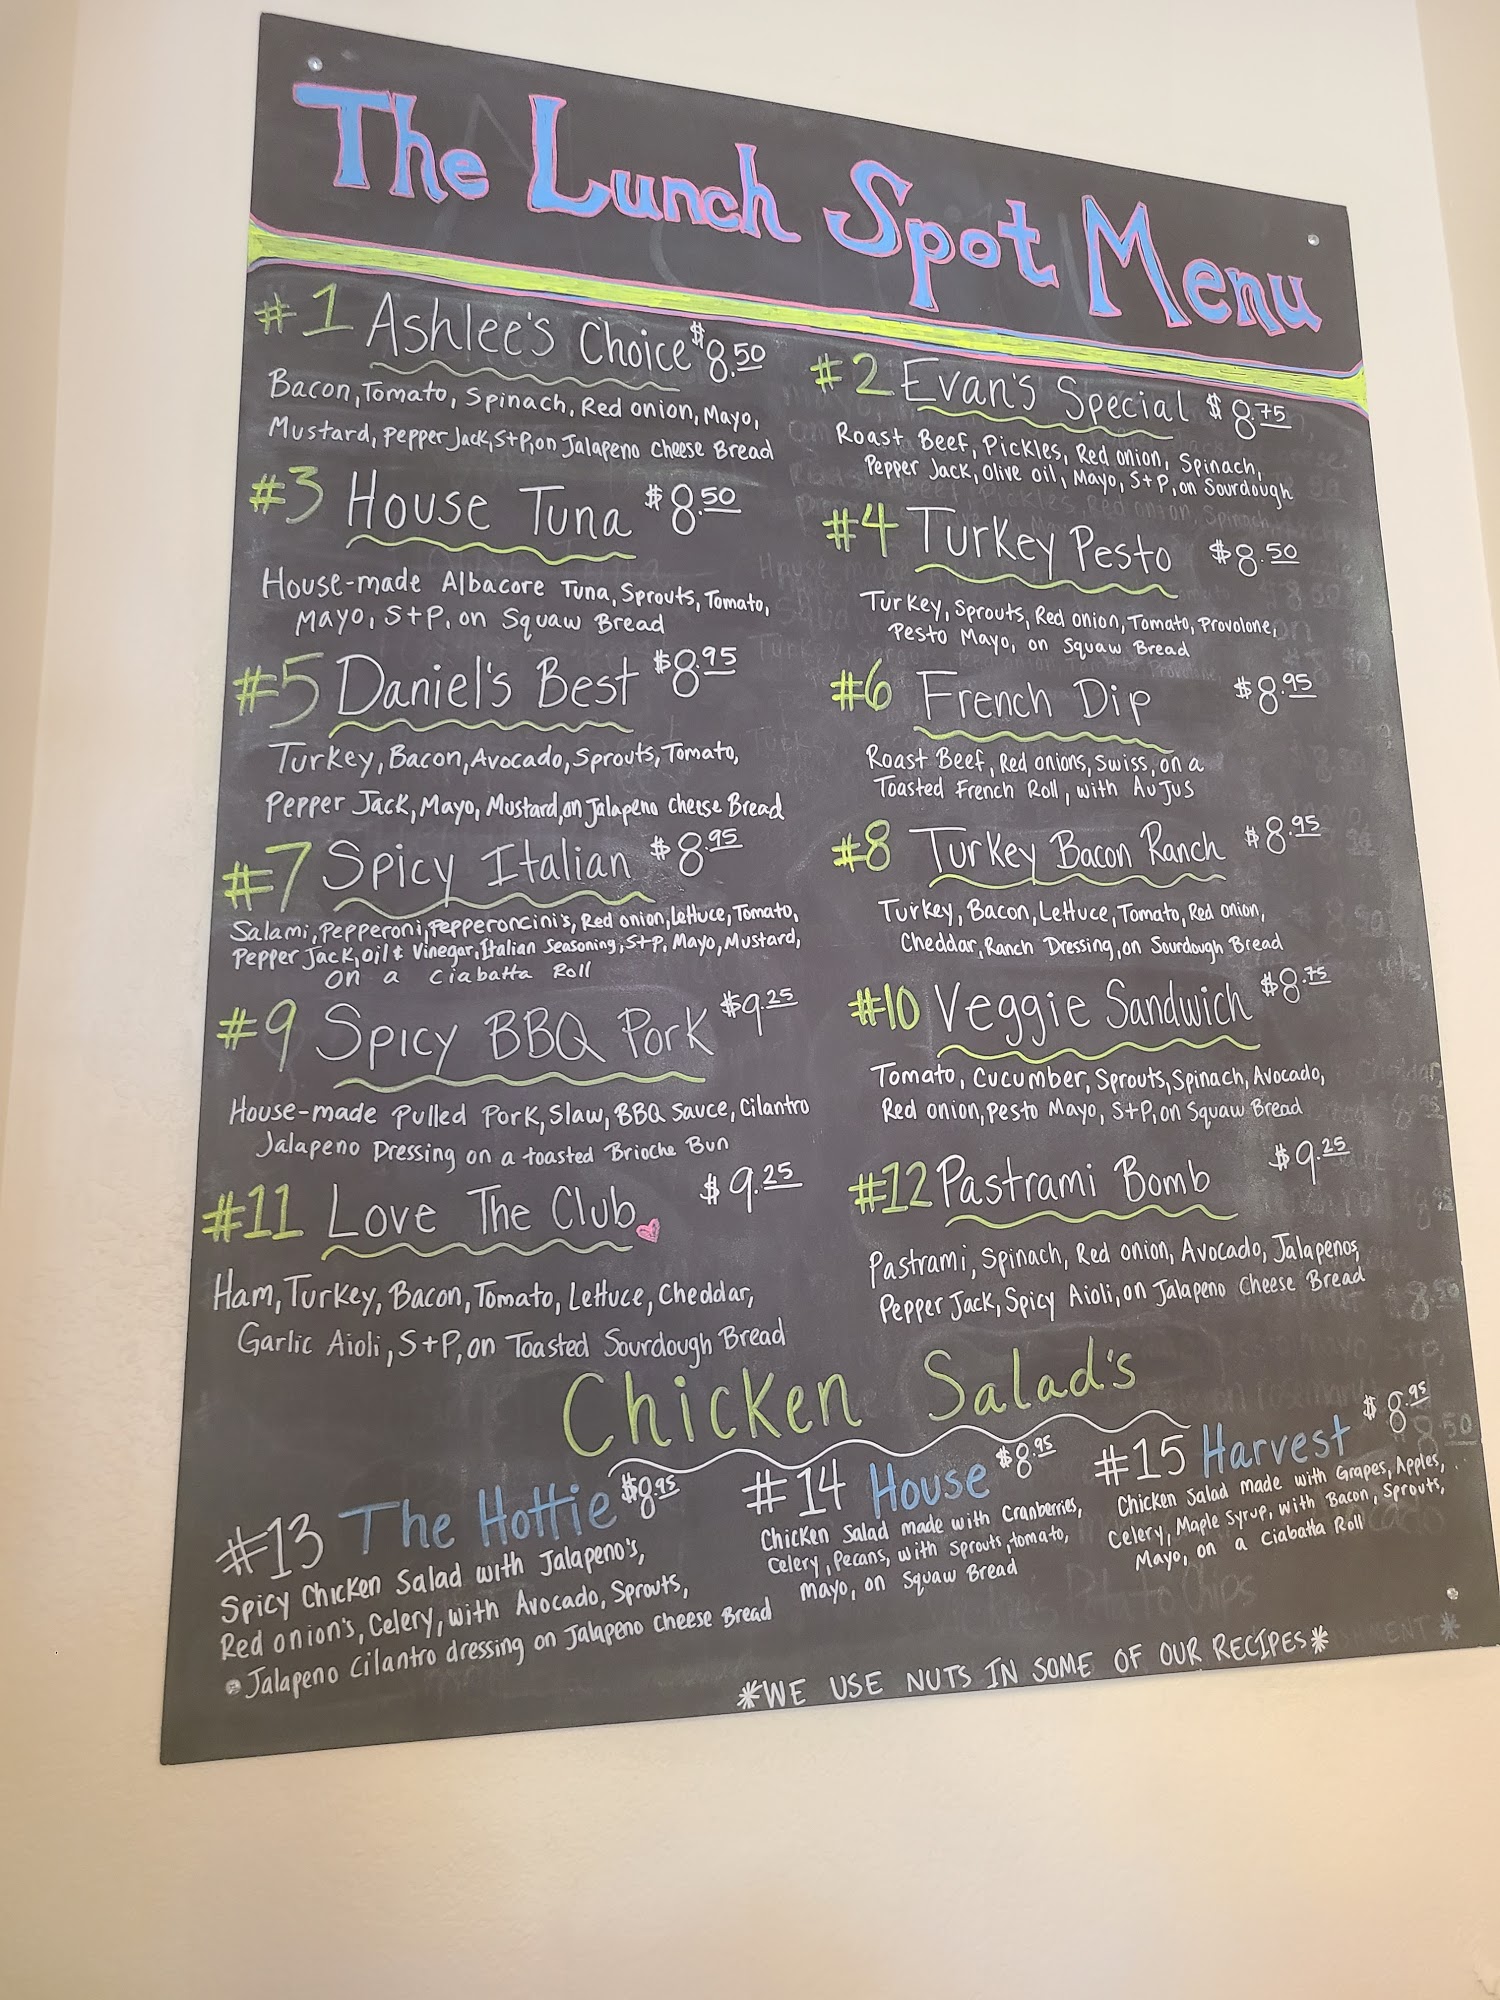 The Lunch Spot Menu
#1 Ashlee's Choice $8.50
Bacon, Tomato, Spinach, Red onion, Mayo,
Mustard, Pepper Jack, S+P, on Jalapeno Cheese Bread
#2 Evan's Special $8.75
Roast Beef, Pickles, Red onion, Spinach,
Pepper Jack, Olive oil, Mayo, S+P, on Sourdough
#3 House Tuna $8.50
House-made Albacore Tuna, Sprouts, Tomato,
Mayo, S+P, on Squaw Bread
#4 Turkey Pesto $8.50
Turkey, Sprouts, Red onion, Tomato, Provolone,
Pesto Mayo, on Squaw Bread
#5 Daniel's Best $8.95
Turkey, Bacon, Avocado, Sprouts, Tomato,
Pepper Jack, Mayo, Mustard, on Jalapeno Cheese Bread
#6 French Dip $8.95
Roast Beef, Red onions, Swiss, on a
Toasted French Roll, with AuJus
#7 Spicy Italian $8.95
Salami, Pepperoni, Pepperoncini's, Red onion, Lettuce, Tomato,
Pepper Jack, Oil & Vinegar, Italian Seasoning, S+P, Mayo, Mustard,
on a Ciabatta Roll
#8 Turkey Bacon Ranch $8.95
Turkey, Bacon, Lettuce, Tomato, Red onion,
Cheddar, Ranch Dressing, on Sourdough Bread
#9 Spicy BBQ Pork $9.25
House-made Pulled Pork, Slaw, BBQ Sauce, Cilantro
Jalapeno Dressing on a toasted Brioche Bun
#10 Veggie Sandwich $8.75
Tomato, Cucumber, Sprouts, Spinach, Avocado,
Red onion, Pesto Mayo, S+P, on Squaw Bread
#11 Love The Club $9.25
Ham, Turkey, Bacon, Tomato, Lettuce, Cheddar,
Garlic Aioli, S+P, on Toasted Sourdough Bread
#12 Pastrami Bomb $9.25
Pastrami, Spinach, Red onion, Avocado, Jalapenos,
Pepper Jack, Spicy Aioli, on Jalapeno Cheese Bread
Chicken Salad's
#13 The Hottie $8.95
Spicy Chicken Salad with Jalapeno's,
Red onion's, Celery, with Avocado, Sprouts,
Jalapeno Cilantro dressing on Jalapeno Cheese Bread
#14 House $8.95
Chicken Salad made with Cranberries,
Celery, Pecans, with Sprouts, tomato,
Mayo, on Squaw Bread
#15 Harvest $8.95
Chicken Salad made with Grapes, Apples,
Celery, Maple Syrup, with Bacon, Sprouts,
Mayo, on a Ciabatta Roll
*WE USE NUTS IN SOME OF OUR RECIPES*